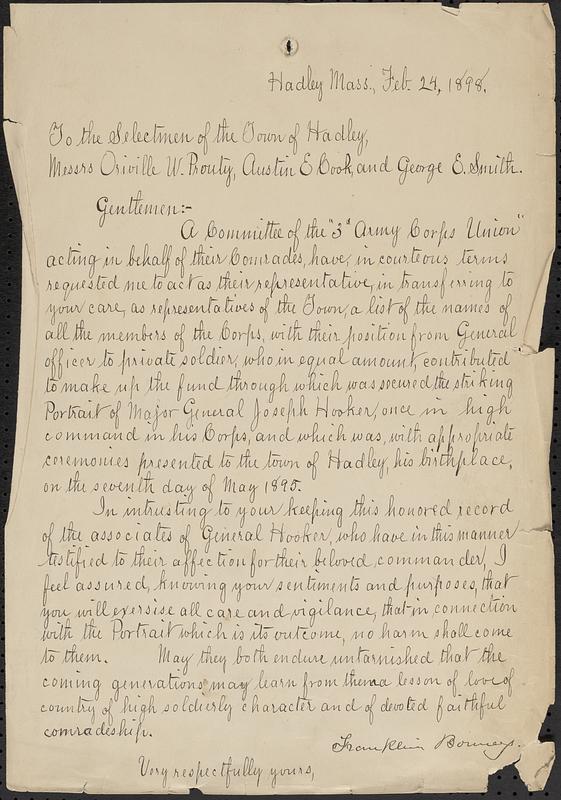 Hadley Mass., Feb. 24, 1898.
To the Selectmen of the Town of Hadley,
Messrs Oriville W. Prouty, Austin E Cook, and George E. Smith.
Gentlemen:-
A Committee of the "3d Army Corps Union"
acting in behalf of their Comrades, have, in courteous terms
requested me to act as their representative, in transferring to
your care, as representatives of the Town, a list of the names of
all the members of the Corps, with their position from General
officer to private soldier, who in equal amount, contributed
to make up the fund through which was secured the striking
Portrait of Major General Joseph Hooker, once in high
command in his Corps, and which was, with appropriate
ceremonies presented to the town of Hadley, his birthplace,
on the seventh day of May 1895.
In intrusting to your keeping this honored record
of the associates of General Hooker, who have in this manner
testified to their affection for their beloved commander, I
feel assured, knowing your sentiments and purposes, that
you will exersise all care and vigilance, that in connection
with the Portrait which is its outcome, no harm shall come
to them. May they both endure untarnished that the
coming generations may learn from them a lesson of love of
country of high soldierly character and of devoted faithful
comradeship.
Franklin Bonney.
Very respectfully yours,